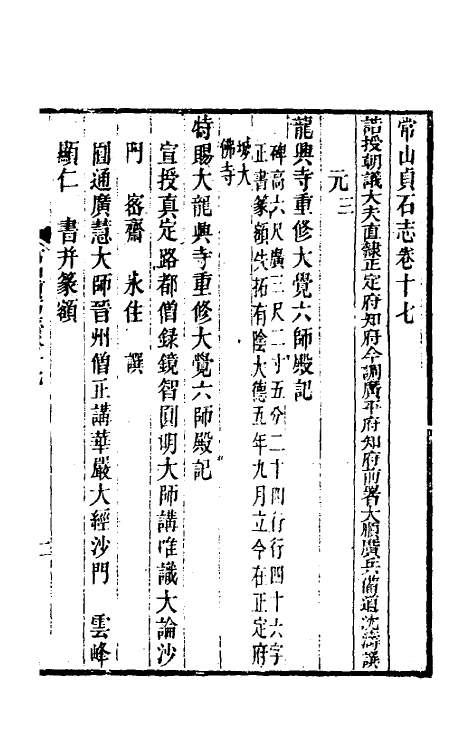 常山貞石志卷十七
誥授朝議大夫直隸正定府知府今調廣平府知府前署大順廣兵備道沈濤譔
元三
龍興寺重修大覺六師殿記
碑高六尺廣三尺二寸五分二十四行行四十六字
正書篆額失拓有陰大德五年九月立今在正定府
城大
佛寺
特賜大龍興寺重修大覺六師殿記
宣授真定路都僧錄鏡智圓明大師講唯識大論沙
門 容齋 永住 譔
圓通廣慧大師晉州僧正講華嚴大經沙門 雲峰
顯仁 書并篆額